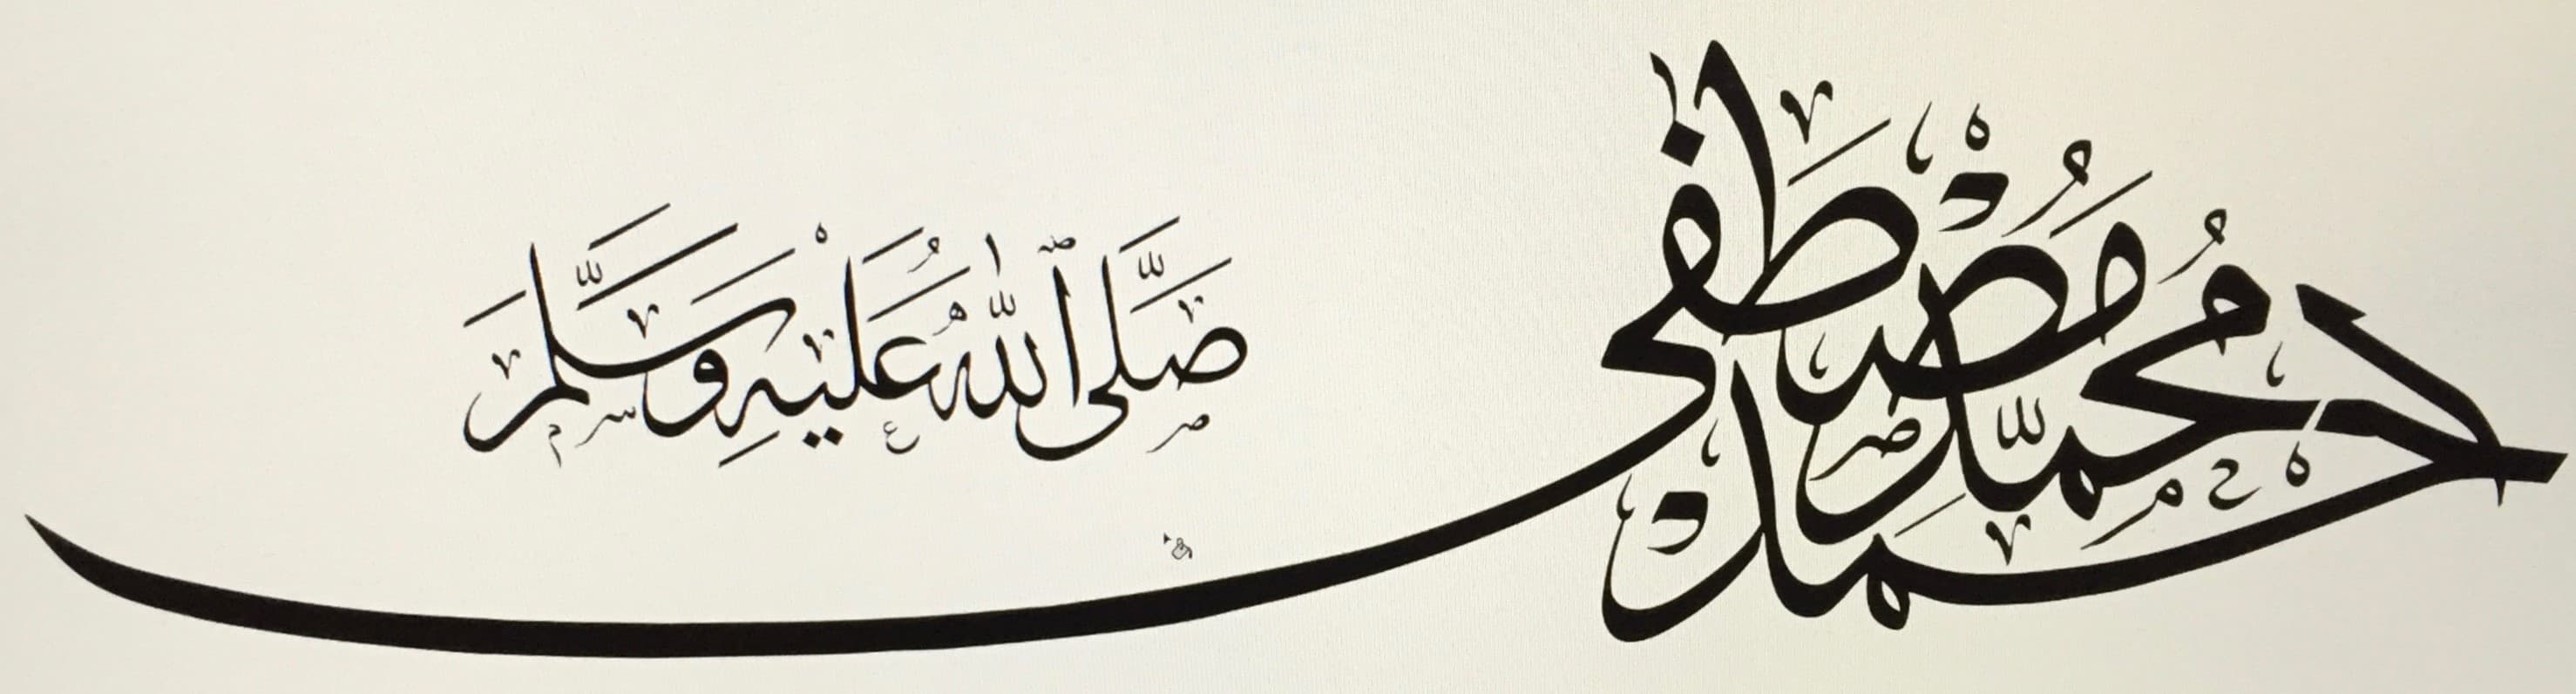 احمد محمد مصطفى
صَلَّى ٱللّٰهُ عَلَيْهِ وَسَلَّمَ